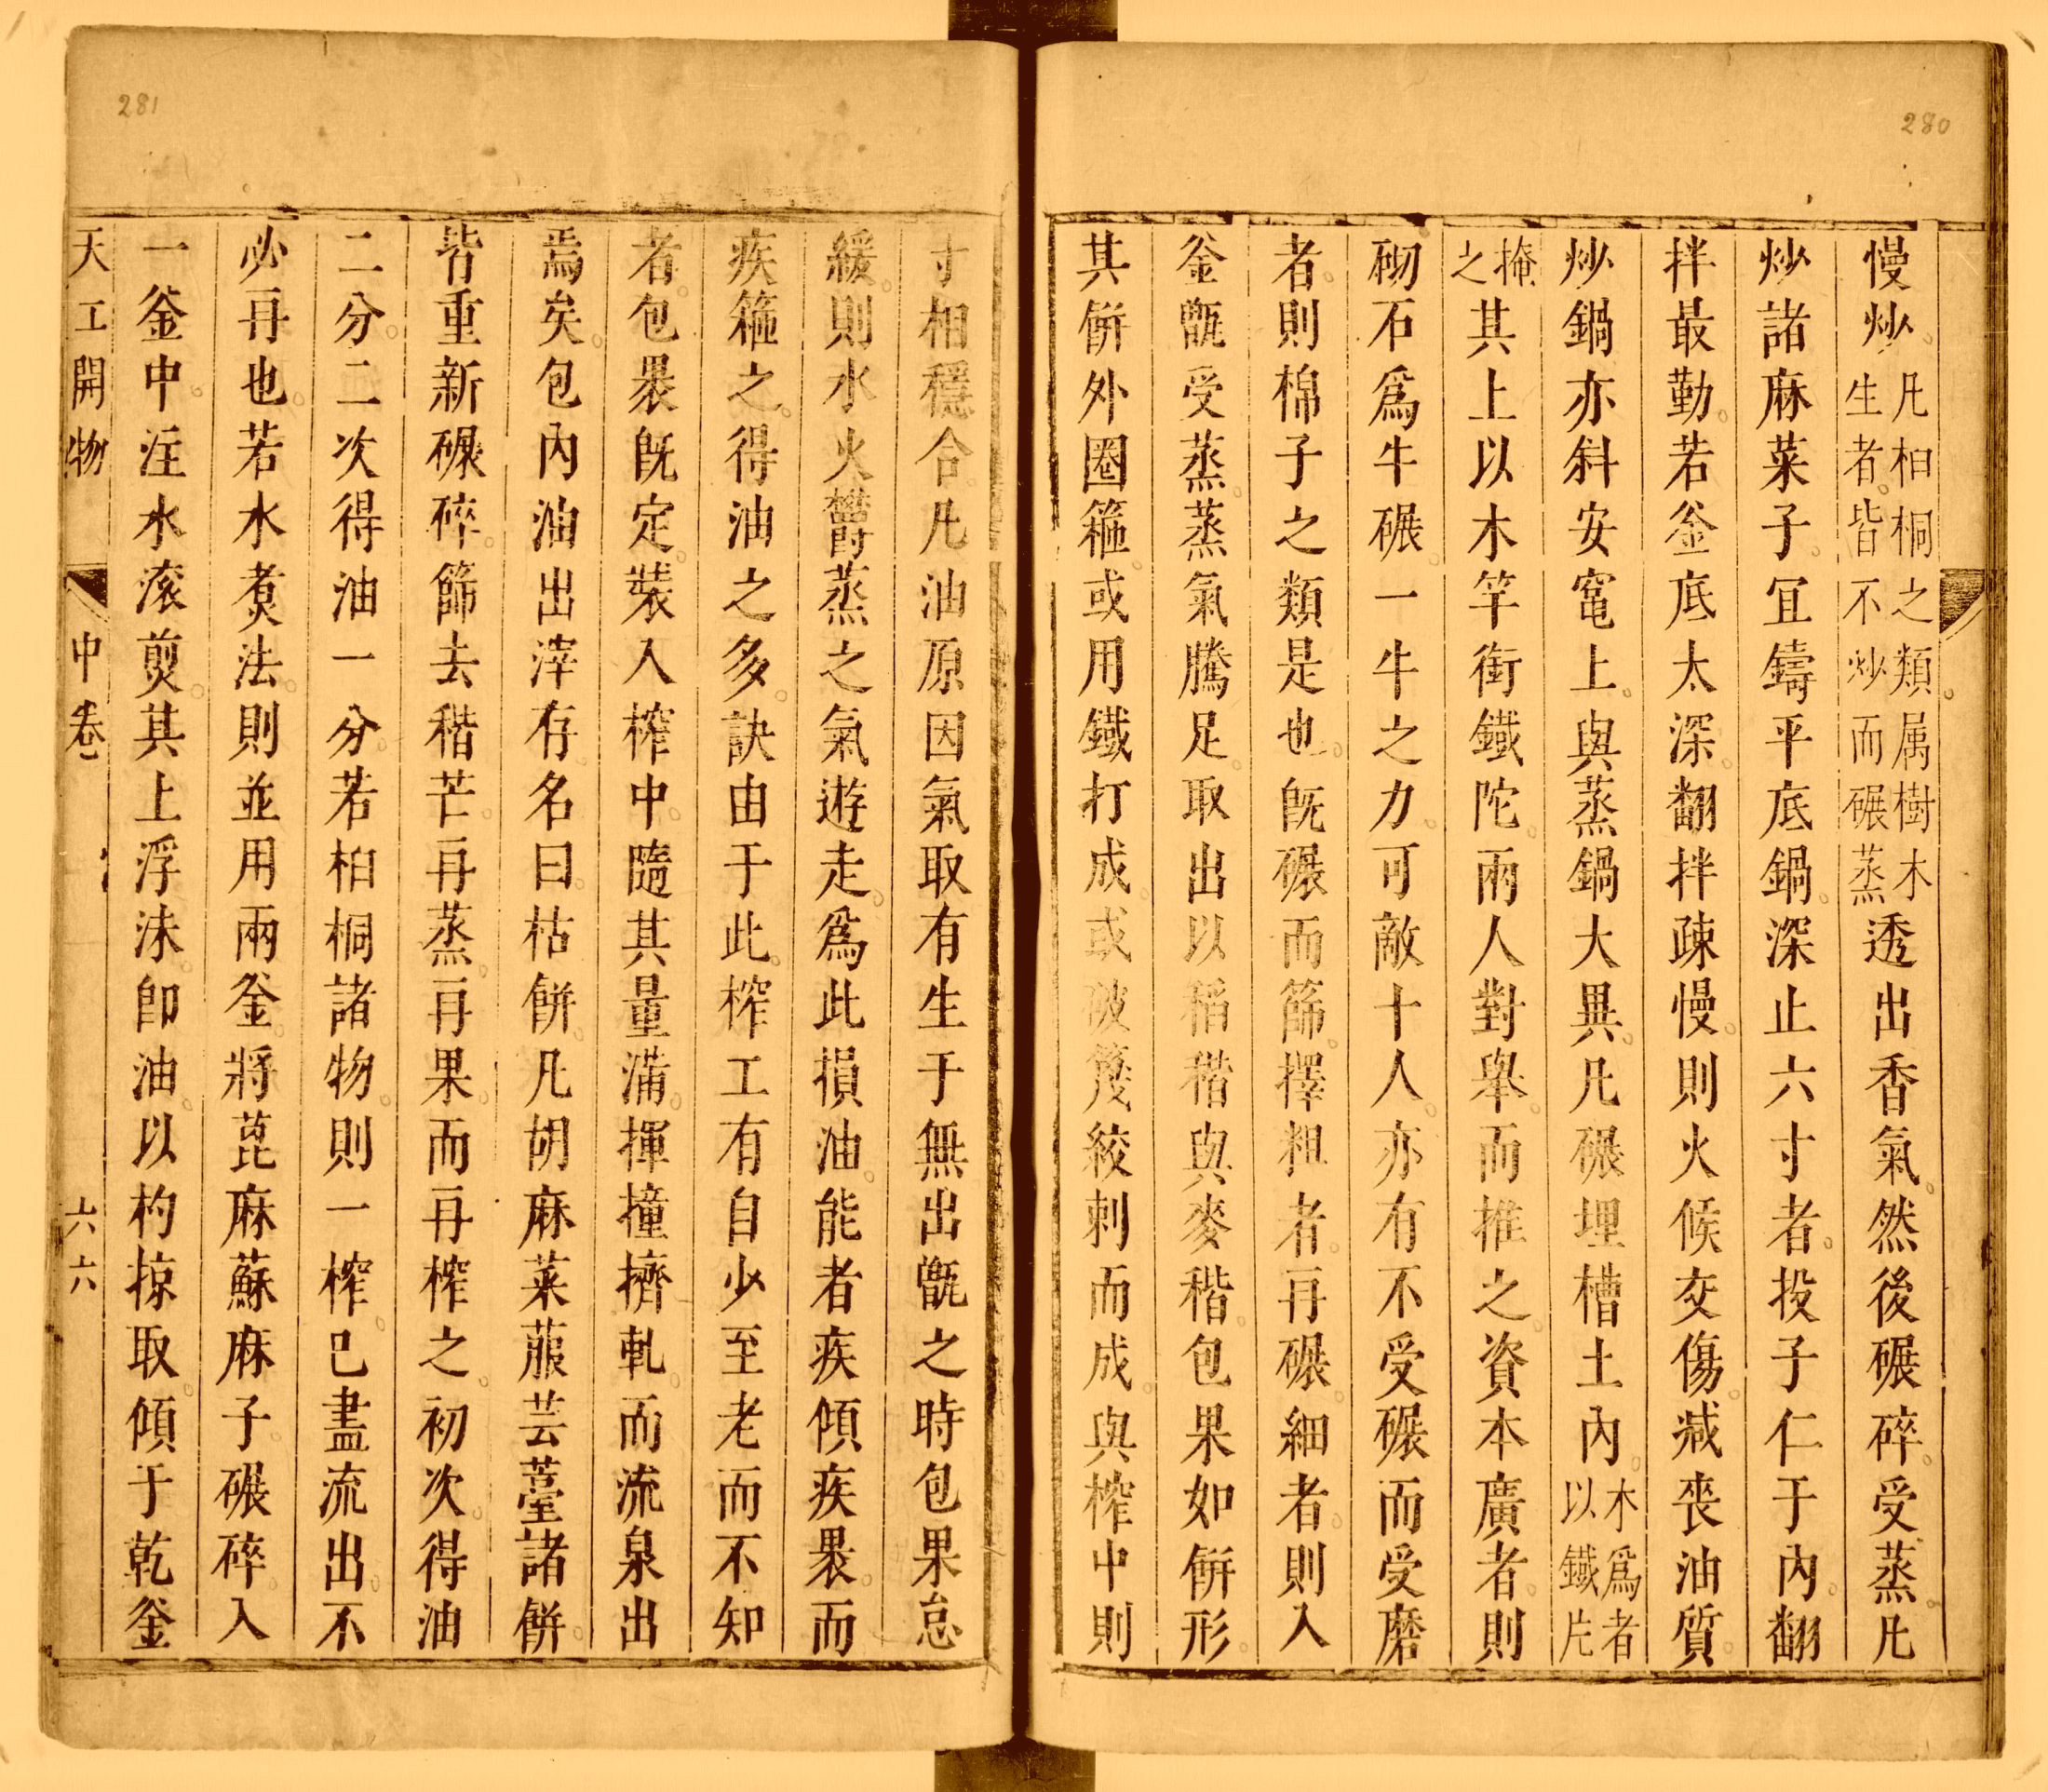 280
慢炒。凡桕桐之類。属樹木生者。皆不炒而碾蒸透出香氣。然後碾碎。受蒸。凡
炒諸麻菜子。宜鑄平底鍋。深止六寸者。投子仁于內。翻
拌最勤。若釜底太深。翻拌疎慢。則火候交傷。减丧油質。
炒鍋亦斜安竃上。與蒸鍋大異。凡碾埋槽土內。木爲者以鐵片
掩之其上以木竿銜鐵陀。兩人對舉。而推之。資本廣者。則
砌石爲牛碾。一牛之力。可敵十人。亦有不受碾而受磨
者。則棉子之類是也。旣碾而篩。擇粗者。再碾。細者。則入
釜甑受蒸。蒸氣騰足。取出以稻稭與麥稭。包果如餅形。
其餅外圈箍。或用鐵打成。或破篾絞刺而成。與榨中則
寸相穩合。凡油原因氣取。有生于無。出甑之時包果怠
緩。則水火鬱蒸之氣遊走。爲此損油。能者疾傾疾裹。而
疾箍之。得油之多。訣由于此。榨工有自少至老而不知
者。包裹旣定。裝入榨中。隨其量滿。揮撞擠軋。而流泉出
焉矣。包內油出滓存。名曰。枯餅。凡胡麻菜菔芸薹諸餅。
皆重新碾碎。篩去稭芒。再蒸。再果。而再榨之。初次。得油
二分。二次得油一分。若桕桐諸物。則一榨。已盡流出。不
必再也。若水煑法。則並用兩釜。將蓖麻蘇麻子碾碎。入
一釜中。注水滚煎。其上浮沬。卽油。以杓掠取。傾于乾釜
天工開物 中卷 六六
281